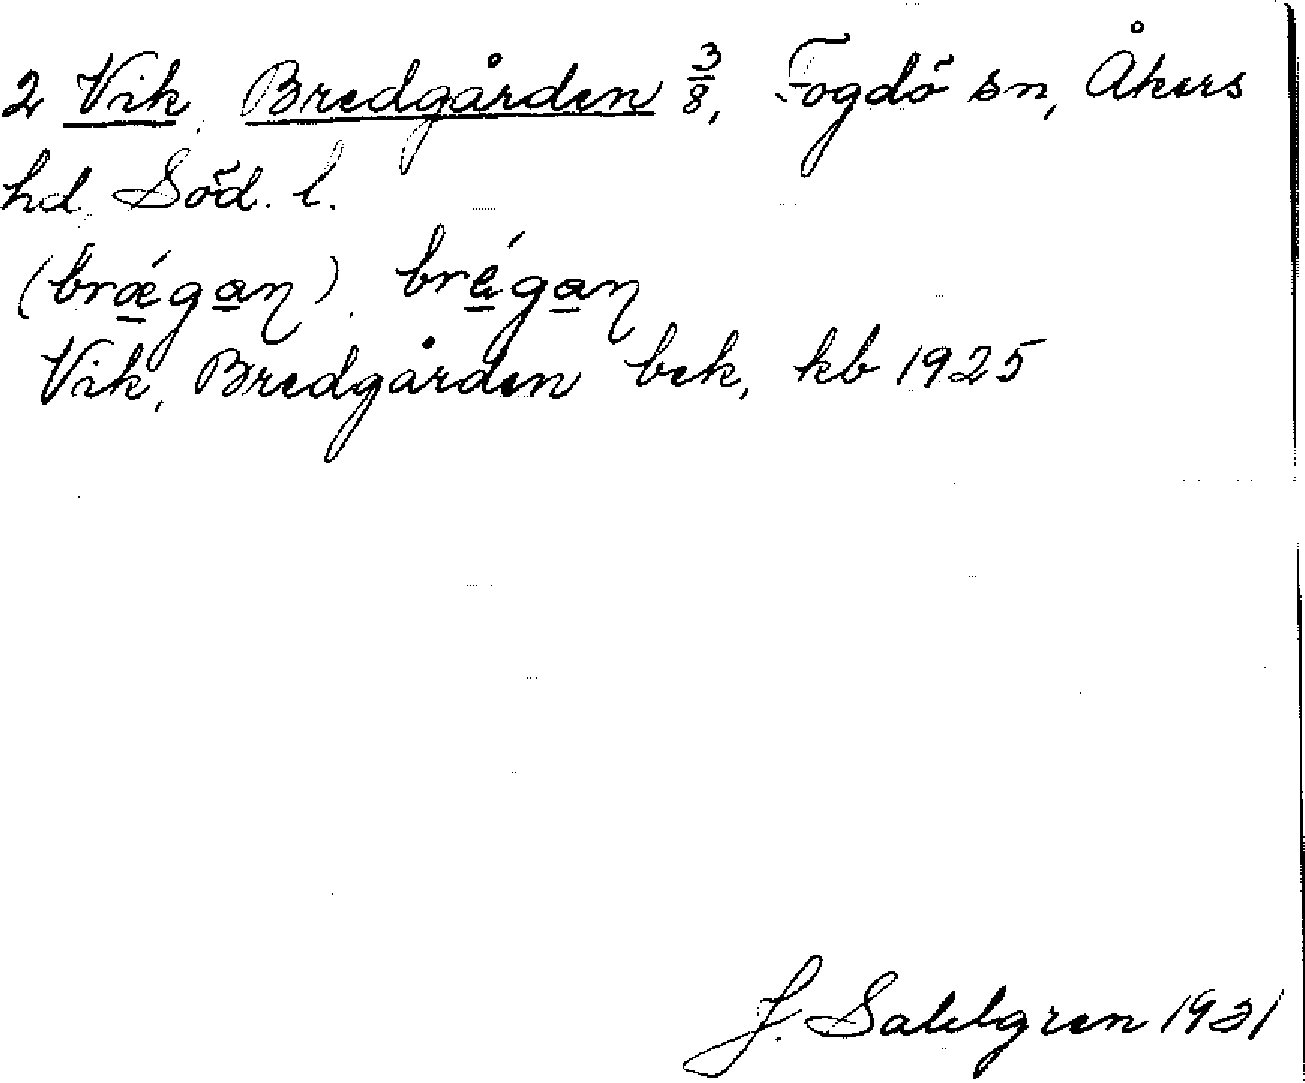 2 Vik, Bredgården 3/8, Fogdö sn, Åkers
hd, Söd. l.
(brǽgaꞃ). brégaꞃ
Vik, Bredgården bek, kb 1925
J. Sahlgren 1921